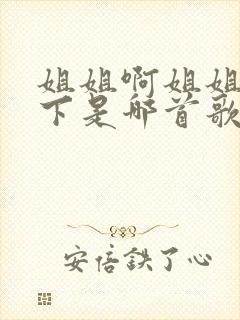 姐姐啊姐姐
下是那首歌
安倍铁了心